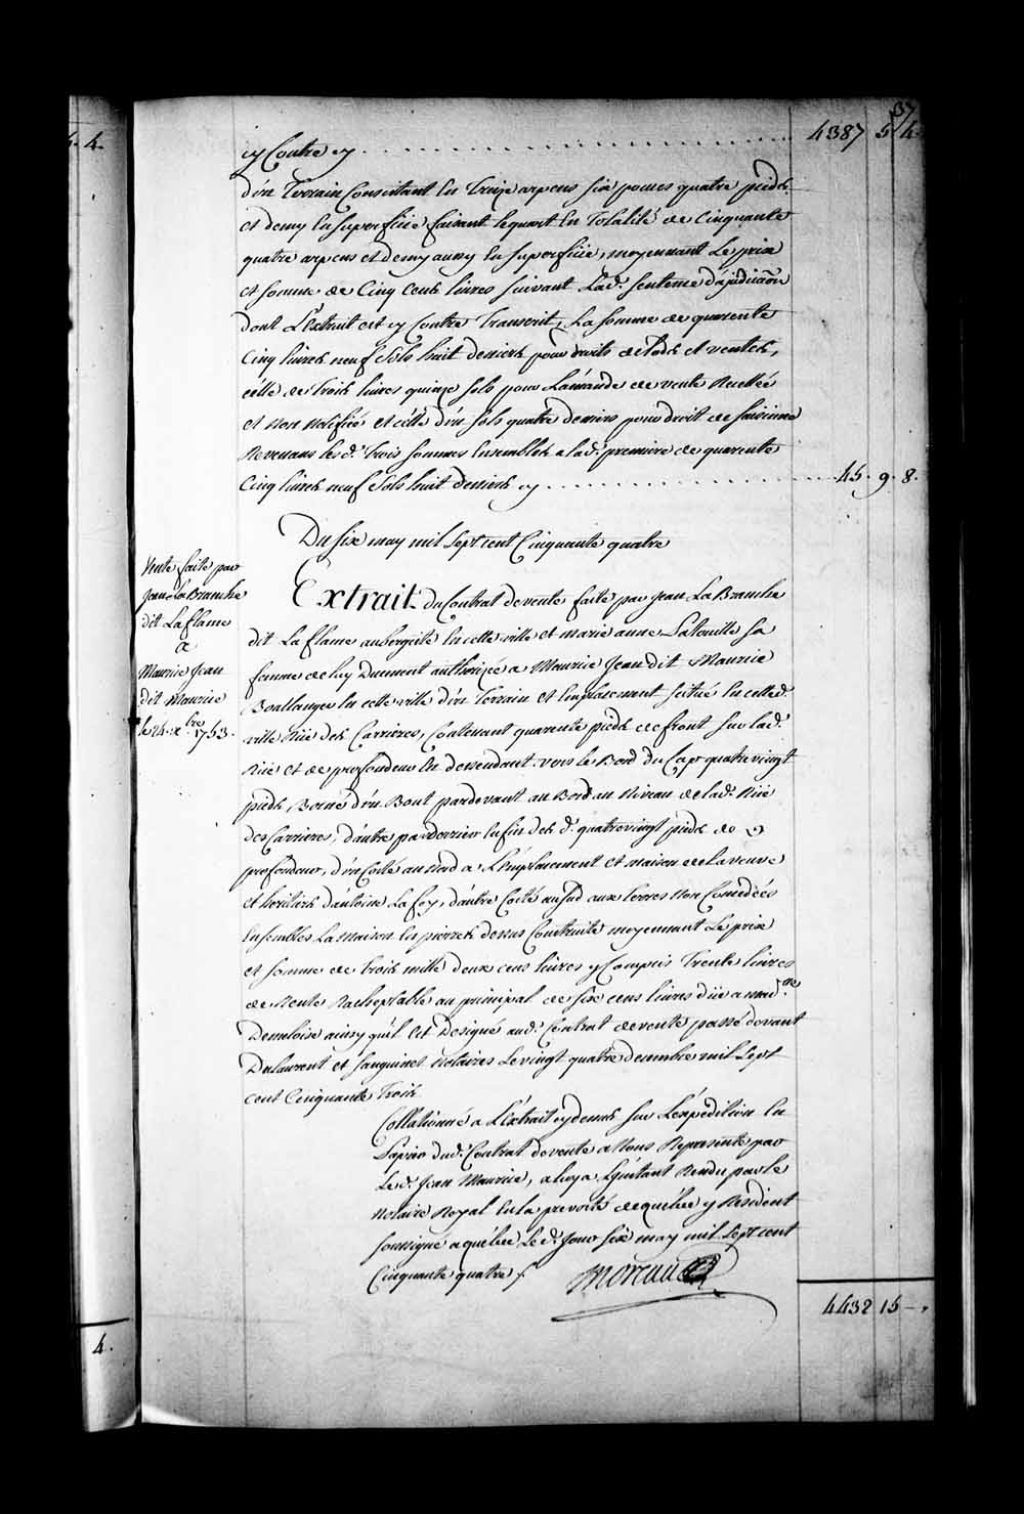 37
4.
cy Contre cy . . . . . . . . . . 4387 5 4.
d'un Terrain Consistant En Treize arpens six pouces quatre pieds
et demy En superficie faisant le quart En Totalité de Cinquante
quatre arpens et demy aussy En superficie, moyennant Le prix
et somme de Cinq Cens livres suivant Lad. sentence d'ajudicaõn
dont L'Extrait est cy Contre Transcrit, La somme de quarente
Cinq livres neuf Sols huit deniers pour droits de Lods et ventes,
célle de trois livres quinze sols pour L'amande de vente Recellée
et Non Notifiée et célle d'un sols quatre deniers pour droit de saisinne
Revenans lesd. trois sommes Ensembles a lad. premiere de quarente
Cinq livres neuf Sols huit deniers cy . . . . . . . . . . 45. 9. 8.
Du six may mil Sept cent Cinquante quatre
Vente faite par
Jean La Branche
dit La flame
a
Maurice Jean
dit Maurice
le 24. x.bre 1753.
Extrait du Contrat de vente faite par Jean La Branche
dit La flame aubergiste En cette ville et marie anne Latouille sa
femme de luy Dument authorizée a Maurice Jean dit Maurice
Boullanger En cette ville d'un Terrain et Emplacement scitué En cetted.
ville Ruë des Carrieres, Contenant quarente pieds de front sur lad.
Ruë et de profondeur En dessendant vers le Bord du Cap quatre vingt
pieds, Borné d'un Bout pardevant au Bord au Niveau de lad. Ruë
des Carrieres, d'autre par derriere En fin des d. quatre vingt pieds de
profondeur, d'un Costé au Nord a L'Emplacement et maison de la veuve
et heritiers d'antoine La foy, d'autre Costé au sud aux terres Non Concedées
Ensembles La maison En pierres dessus Construite moyennant Le prix
et somme de trois mille deux cens livres y Compris Trente livres
de Rente Rachaptable au principal de six cens livres düe a mad.lle
Demeloise ainsy qu'il Est Designé aud. Contrat de vente passé devant
Dulaurent et Sanguinet Notaires Le vingt quatre decembre mil Sept
cent Cinquante Trois
Collationné a L'Extrait cy dessus sur L'expedition En
Papier dud. Contrat de vente a Nous Representée par
Led. Jean Maurice, a luy a L'instant Rendu par le
Notaire Royal En la prevosté de quebec y Resident
soussigné a quebec Led. Jour six may mil Sept cent
Cinquante quatre /. Moreau
4432 15 -.
4.